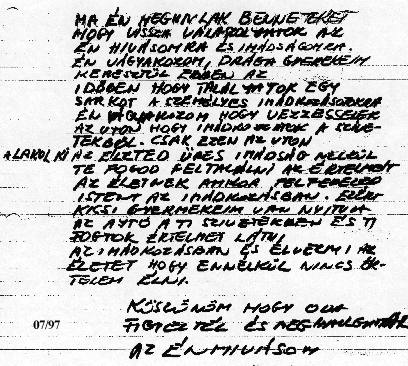 MA ÉN MEGHIVLAK BENNETEKET
HOGY VISSZA VÁLASZOLYATOK AZ
ÉN HIVÁSOMRA ÉS IMÁDSÁGOMRA.
ÉN VÁGYAKOZOM, DRÁGA GYEREKEIM
KERESZTÜL EBBEN AZ
IDŐBEN HOGY TALÁLYATOK EGY
SARKOT A SZEMÉLYES IMÁDKOZÁSOTOKRA
ÉN VÁGYAKOZOM HOGY VEZZESSELEK
AZ UTON HOGY IMÁDKOZZATOK A SZIVE-
TEKBŐL. CSAK EZEN AZ UTON
ALAKUL KI AZ ÉLETED ÜRES IMÁDSÁG NÉLKÜL
TE FOGOD FELTALÁLNI AZ ÉRTELMÉT
AZ ÉLETNEK AMIKOR FELFEDEZED
ISTENT AZ IMÁDKOZÁSBAN. EZÉRT
KICSI GYERMEKEIM NYITSÁK
AZ AJTÓ A TI SZIVETEKBEN ÉS TI
FOGTOK ÉRTELMET LÁTNI
AZ IMÁDKOZÁSBAN ÉS ÉLVEZNI AZ
ÉLETET HOGY ENNÉLKÜL NINCS ÉR-
TELEM ÉLNI.
KÖSZÖNÖM HOGY ODA
FIGYELTÉL ÉS
07/97
AZ ÉN HIVÁSOM